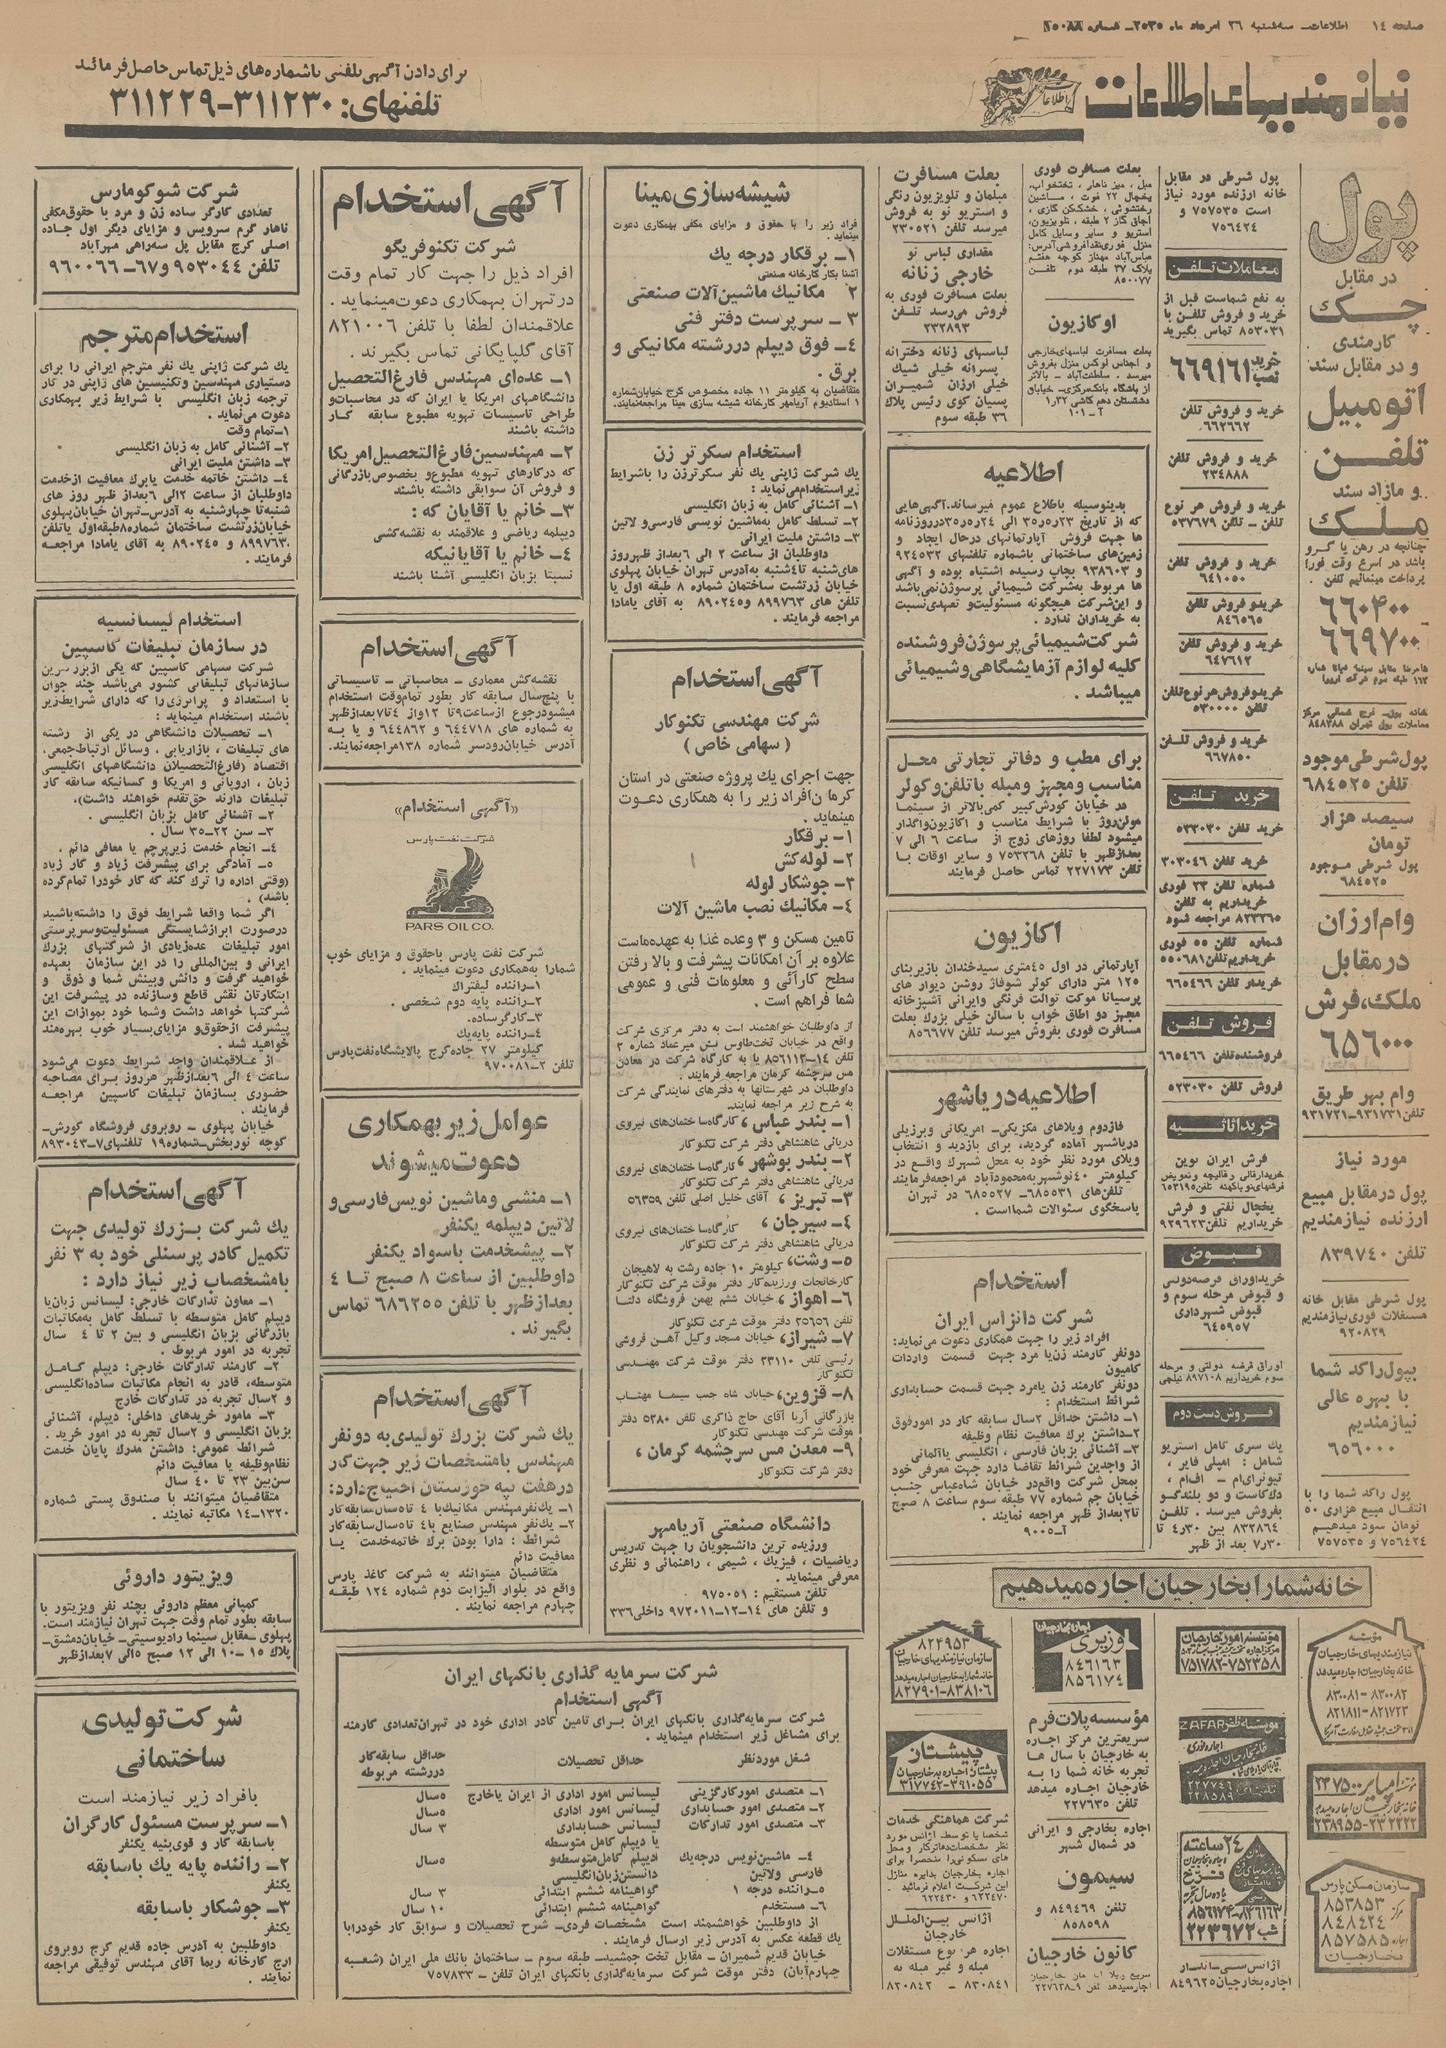 صفحه ۱۴ اطلاعات ـ سه‌شنبه ۲۶ امرداد ماه ۲۵۳۵ ـ شماره ۱۵۰۸۸
نیازمندیهای اطلاعات
برای دادن آگهی تلفنی با شماره‌های ذیل تماس حاصل فرمائید
تلفنهای: ۳۱۱۲۳۰-۳۱۱۲۲۹
پول
در مقابل
چک
کارمندی
و در مقابل سند
اتومبیل
تلفن
و مازاد سند
ملک
چنانچه در رهن یا گرو
باشد در اسرع وقت فورا
پرداخت مینمائیم تلفن .
۶۶۰۴۰۰
۶۶۹۷۰۰
پول شرطی موجود
تلفن ۶۸۴۵۲۵
سیصد هزار
تومان
پول شرطی موجود
۶۸۴۵۲۵
وام ارزان
در مقابل
ملک، فرش
۶۵۶۰۰۰
وام بهر طریق
تلفن ۹۳۱۷۳۱-۹۳۱۷۲۱
مورد نیاز
پول در مقابل مبیع
ارزنده نیازمندیم
تلفن ۸۳۹۷۴۰
پول شرطی مقابل خانه
مستغلات فوری نیازمندیم
۹۲۰۸۲۹
بپول راکد شما
با بهره عالی
نیازمندیم
۶۵۶۰۰۰
پول راکد شما را با
انتقال مبیع هزاری ۵۰
تومان سود میدهیم
۷۵۶۴۲۴ و ۷۵۷۵۳۵
پول شرطی در مقابل
خانه ارزنده مورد نیاز
است ۷۵۷۵۳۵ و
۷۵۶۴۲۴
معاملات تلفن
به نفع شماست قبل از
خرید و فروش تلفن با
۸۵۳۰۳۱ تماس بگیرید
خرید
نصب ۶۶۹۱۶۱
خرید و فروش تلفن
۶۶۲۶۶۲
خرید و فروش تلفن
۲۳۴۸۸۸
خرید و فروش هر نوع
تلفن ـ تلفن ۵۳۷۶۷۹
خرید و فروش تلفن
۶۴۱۰۵۰
خرید و فروش تلفن
۸۴۶۵۶۵
خرید و فروش تلفن
۶۴۷۶۱۲
خرید و فروش هر نوع تلفن
تلفن ۵۳۰۰۰۰
خرید و فروش تلفن
۶۶۷۸۵۰
خرید تلفن
خرید تلفن ۵۳۳۰۳۰
خرید تلفن ۳۰۳۰۴۶
شماره تلفن ۲۳ فوری
خریداریم به تلفن
۸۲۳۲۶۵ مراجعه شود
شماره تلفن ۵۵ فوری
خریداریم تلفن ۵۵۰۶۸۱
خریدار تلفن ۶۶۵۴۶۶
فروش تلفن
فروشنده تلفن ۶۶۵۴۶۶
فروش تلفن ۵۲۳۰۳۰
خرید اثاثیه
فرش ایران نوین
خریدار قالی و قالیچه و تعویض
فرشهای نو با کهنه تلفن ۶۵۳۱۹۵
یخچال نفتی و فرش
خریداریم تلفن ۹۲۹۶۲۳
قبوض
خرید اوراق قرضه دولتی
و قبوض مرحله سوم و
قبوض شهرداری
۶۴۵۹۵۷
اوراق قرضه دولتی و مرحله
سوم خریداریم ۸۹۷۱۰۸ نیلچی
فروش دست دوم
یک سری کامل استریو
شامل : امپلی فایر ،
تیونر ای‌ام ـ اف‌ام ،
دک کاست و دو بلندگو
بفروش میرسد . تلفن
۸۳۲۸۶۴ بین ۴٫۳۰ تا
۷٫۳۰ بعد از ظهر
بعلت مسافرت فوری
مبل ، میز ناهار ، تختخواب،
یخچال ۲۲ فوت ، ماشین
رختشوئی ، خشک‌کن گازی ،
اجاق گاز ۲ طبقه ، تلویزیون،
استریو و سایر وسایل کامل
منزل فوری نقد افروشی آدرس:
عباس‌آباد مهناز کوچه هفتم
پلاک ۲۷ طبقه دوم تلفن
۸۵۰۰۷۷
اوکازیون
بعلت مسافرت لباسهای خارجی
و اجناس لوکس منزل بفروش
میرسد . سلطنت‌آباد ـ بالاتر
از باشگاه بانک مرکزی ـ خیابان
دشتستان دهم کاشی ۳۲ر۱
آ ـ ۱۰۱
بعلت مسافرت
مبلمان و تلویزیون رنگی
و استریو نو به فروش
میرسد تلفن ۲۳۰۵۲۱
مقداری لباس نو
خارجی زنانه
بعلت مسافرت فوری به
فروش می‌رسد تلفن
۲۳۲۸۹۳
لباسهای زنانه دخترانه
پسرانه خیلی شیک
خیلی ارزان شمیران
پسیان کوی رئیس پلاک
۳۶ طبقه سوم
اطلاعیه
بدینوسیله باطلاع عموم میرساند. آگهی‌هایی
که از تاریخ ۲۳ر۵ر۳۵ الی ۲۴ر۵ر۳۵ در روزنامه
ها جهت فروش آپارتمانهای درحال ایجاد و
زمین‌های ساختمانی باشماره تلفنهای ۹۲۴۵۳۲
و ۹۳۸۶۰۳ بچاپ رسیده اشتباه بوده و آگهی
ها مربوط به شرکت شیمیائی پرسوژن نمی‌باشد
و این شرکت هیچگونه مسئولیت و تعهدی نسبت
به خریداران ندارد .
شرکت شیمیائی پرسوژن فروشنده
کلیه لوازم آزمایشگاهی و شیمیائی
میباشد .
برای مطب و دفاتر تجارتی محل
مناسب و مجهز و مبله با تلفن و کولر
در خیابان کورش کبیر کمی بالاتر از سینما
مولن‌روژ با شرایط مناسب و اکازیون واگذار
میشود لطفا روزهای زوج از ساعت ۶ الی ۷
بعدازظهر با تلفن ۷۵۳۲۶۸ و سایر اوقات با
تلفن ۲۲۷۱۷۳ تماس حاصل فرمایند
اکازیون
آپارتمانی در اول ۴۵متری سیدخندان بازیربنای
۱۲۵ متر دارای کولر شوفاژ روشن دیوار های
پرسیانا موکت توالت فرنگی وایرانی آشپزخانه
مجهز دو اطاق خواب با سالن خیلی بزرگ بعلت
مسافرت فوری بفروش میرسد تلفن ۸۵۶۶۷۷
اطلاعیه دریاشهر
فازدوم ویلاهای مکزیکی ـ امریکائی وبرزیلی
دریاشهر آماده گردید، برای بازدید و انتخاب
ویلای مورد نظر خود به محل شهرک واقع در
کیلومتر ۴۰نوشهر به محمودآباد مراجعه فرمایند
تلفن‌های ۶۸۵۵۳۱ـ ۶۸۵۵۲۷ در تهران
پاسخگوی سئوالات شماست .
استخدام
شرکت دانزاس ایران
افراد زیر را جهت همکاری دعوت می‌نماید:
دونفر کارمند زن یا مرد جهت قسمت واردات
کامیون
دونفر کارمند زن یامرد جهت قسمت حسابداری
شرائط استخدام :
۱ـ داشتن حداقل ۲سال سابقه کار در امورفوق
۲ـداشتن برک معافیت نظام وظیفه
۳ـ آشنائی بزبان فارسی ، انگلیسی یاآلمانی
از واجدین شرائط تقاضا دارد جهت معرفی خود
بمحل شرکت واقع در خیابان شاه‌عباس جنب
خیابان جم شماره ۷۷ طبقه سوم ساعت ۸ صبح
تا۲بعداز ظهر مراجعه نمایند .
آـ۹۰۰۵
شیشه سازی مینا
فراد زیر را با حقوق و مزایای مکفی بهمکاری دعوت
مینماید .
۱ـ برقکار درجه یک
آشنا بکار کارخانه صنعتی
۲ مکانیک ماشین‌آلات صنعتی
۳ ـ سرپرست دفتر فنی
۴ـ فوق دیپلم دررشته مکانیکی و
برق .
متقاضیان به کیلومتر ۱۱ جاده مخصوص کرج خیابان‌شماره
۱ استادیوم آریامهر کارخانه شیشه سازی مینا مراجعه‌نمایند.
استخدام سکرتر زن
یک شرکت ژاپنی یک نفر سکرترزن را باشرایط
زیر استخدام می‌نماید :
۱ـ آشنائی کامل به زبان انگلیسی
۲ـ تسلط کامل به‌ماشین نویسی فارسی و لاتین
۳ـ داشتن ملیت ایرانی
داوطلبان از ساعت ۲ الی ۶ بعداز ظهرروز
های‌شنبه تا۴شنبه به‌آدرس تهران خیابان پهلوی
خیابان زرتشت ساختمان شماره ۸ طبقه اول یا
تلفن های ۸۹۹۷۶۳ و۸۹۰۲۴۵ به آقای یامادا
مراجعه فرمایند .
آگهی استخدام
شرکت مهندسی تکنوکار
( سهامی خاص )
جهت اجرای یک پروژه صنعتی در استان
کرمان افراد زیر را به همکاری دعوت
مینماید .
۱ـ برقکار
۲ـ لوله‌کش
۳ـ جوشکار لوله
۴ـ مکانیک نصب ماشین آلات
تامین مسکن و ۳ وعده غذا به عهده‌ماست
علاوه بر آن امکانات پیشرفت و بالا رفتن
سطح کارآئی و معلومات فنی و عمومی
شما فراهم است .
از داوطلبان خواهشمند است به دفتر مرکزی شرکت
واقع در خیابان تخت‌طاوس نبش میرعماد شماره ۲
تلفن ۱۴ـ۸۵۶۱۱۳ یا به کارگاه شرکت در معادن
مس سرچشمه کرمان مراجعه فرمایند .
داوطلبان در شهرستانها به دفترهای نمایندگی شرکت
به شرح زیر مراجعه نمایند.
۱ـ بندر عباس ، کارگاه‌ساختمان‌های نیروی
دریائی شاهنشاهی دفتر شرکت تکنوکار
۲ـ بندر بوشهر ، کارگاه‌ساختمان‌های نیروی
دریائی شاهنشاهی دفتر شرکت تکنوکار
۳ـ تبریز ، آقای خلیل اصلی تلفن ۵۶۳۵۹
۴ـ سیرجان ، کارگاه‌ساختمان‌های نیروی
دریائی شاهنشاهی دفتر شرکت تکنوکار
۵ـ رشت، کیلومتر ۱۰ جاده رشت به لاهیجان
کارخانجات ورزیده‌کار دفتر موقت شرکت تکنوکار
۶ـ اهواز ، خیابان ششم بهمن فروشگاه دلتا
تلفن ۲۵۶۵۶ دفتر موقت شرکت تکنوکار
۷ـ شیراز ، خیابان مسجد وکیل آهن فروشی
رئیسی تلفن ۲۳۱۱۰ دفتر موقت شرکت مهندسی
تکنوکار
۸ـ قزوین، خیابان شاه جنب سینما مهتاب
بازرگانی آریا آقای حاج ذاکری تلفن ۵۲۸۰ دفتر
موقت شرکت مهندسی تکنوکار
۹ـ معدن مس سرچشمه کرمان ،
دفتر شرکت تکنوکار
دانشگاه صنعتی آریامهر
ورزیده ترین دانشجویان را جهت تدریس
ریاضیات ، فیزیک ، شیمی ، راهنمائی و نظری
معرفی مینماید .
تلفن مستقیم : ۹۷۵۰۵۱
و تلفن های ۱۴ـ۱۲ـ۹۷۲۰۱۱ داخلی ۳۳۶
آگهی استخدام
شرکت تکنوفریگو
افراد ذیل را جهت کار تمام وقت
در تهران بهمکاری دعوت مینماید .
علاقمندان لطفا با تلفن ۸۲۱۰۰۶
آقای گلپایگانی تماس بگیرند .
۱ـ عده‌ای مهندس فارغ‌التحصیل
دانشگاههای امریکا یا ایران که در محاسبات و
طراحی تاسیسات تهویه مطبوع سابقه کار
داشته باشند
۲ـ مهندسین فارغ‌التحصیل امریکا
که درکارهای تهویه مطبوع و بخصوص بازرگانی
و فروش آن سوابقی داشته باشند
۳ـ خانم یا آقایان که :
دیپلمه ریاضی و علاقمند به نقشه‌کشی
۴ـ خانم یا آقایانیکه
نسبتا بزبان انگلیسی آشنا باشند
آگهی استخدام
نقشه‌کش معماری ـ محاسباتی ـ تاسیساتی
با پنج‌سال سابقه کار بطور تمام‌وقت استخدام
میشود رجوع از ساعت ۹تا ۱۲ واز ۴تا۷ بعدازظهر
به شماره های ۶۴۴۷۱۸ و ۶۴۴۸۶۲ و یا به
آدرس خیابان رودسر شماره ۱۳۸ مراجعه نمایند.
«آگهی استخدام»
شرکت نفت پارس
PARS OIL CO.
شرکت نفت پارس باحقوق و مزایای خوب
شمارا به‌همکاری دعوت مینماید .
۱ـ راننده لیفتراک
۲ـ راننده پایه دوم شخصی .
۳ـ کارگر ساده.
۴ـ راننده پایه‌یک
کیلومتر ۲۷ جاده‌کرج پالایشگاه نفت‌پارس
تلفن ۲ـ۹۷۰۰۸۱
عوامل زیر بهمکاری
دعوت میشوند
۱ـ منشی و ماشین نویس فارسی و
لاتین دیپلمه یکنفر.
۲ـ پیشخدمت باسواد یکنفر
داوطلبین از ساعت ۸ صبح تا ۴
بعدازظهر با تلفن ۶۸۶۲۵۵ تماس
بگیرند .
آگهی استخدام
یک شرکت بزرک تولیدی به دو نفر
مهندس بامشخصات زیر جهت کار
در هفت تپه خوزستان احتیاج دارد:
۱ـ یک‌نفر مهندس مکانیک با ۴ تا ۵سال سابقه‌کار
۲ـ یک نفر مهندس صنایع با ۴ تا ۵سال سابقه‌کار
شرائط : دارا بودن برک خاتمه خدمت یا
معافیت دائم
متقاضیان میتوانند به شرکت کاغذ پارس
واقع در بلوار الیزابت دوم شماره ۱۲۴ طبقه
چهارم مراجعه نمایند .
شرکت شوکومارس
تعدادی کارگر ساده زن و مرد با حقوق‌مکفی
ناهار گرم سرویس و مزایای دیگر اول جاده
اصلی کرج مقابل پل سه‌راهی مهرآباد
تلفن ۹۵۳۰۴۴ و ۶۷ـ ۹۶۰۰۶۶
استخدام مترجم
یک شرکت ژاپنی یک نفر مترجم ایرانی را برای
دستیاری مهندسین و تکنیسین های ژاپنی در کار
ترجمه زبان انگلیسی با شرایط زیر بهمکاری
دعوت می‌نماید .
۱ـ تمام وقت
۲ـ آشنائی کامل به زبان انگلیسی
۳ـ داشتن ملیت ایرانی
۴ـ داشتن خاتمه خدمت یابرک معافیت ازخدمت
داوطلبان از ساعت ۲ الی ۶ بعداز ظهر روز های
شنبه تا چهارشنبه به آدرس ـ تهران خیابان پهلوی
خیابان زرتشت ساختمان شماره ۸ طبقه اول یا تلفن
۸۹۹۷۶۳ و ۸۹۰۲۴۵ به آقای یامادا مراجعه
فرمایند .
استخدام لیسانسیه
در سازمان تبلیغات کاسپین
شرکت سهامی کاسپین که یکی ازبزرگترین
سازمانهای تبلیغاتی کشور می‌باشد چند جوان
با استعداد و پرانرژی را که دارای شرایط زیر
باشند استخدام مینماید :
۱ـ تحصیلات دانشگاهی در یکی از رشته
های تبلیغات ، بازاریابی ، وسائل ارتباط جمعی،
اقتصاد (فارغ‌التحصیلان دانشگاههای انگلیسی
زبان ، اروپائی و امریکا و کسانیکه سابقه کار
تبلیغات دارند حق‌تقدم خواهند داشت).
۲ـ آشنائی کامل بزبان انگلیسی .
۳ـ سن ۲۲ـ۳۵ سال .
۴ـ انجام خدمت زیرپرچم یا معافی دائم .
۵ـ آمادگی برای پیشرفت زیاد و کار زیاد
(وقتی اداره را ترک کند که کار خودرا تمام‌کرده
باشد) .
اگر شما واقعا شرایط فوق را داشته‌باشید
درصورت ابراز شایستگی مسئولیت و سرپرستی
امور تبلیغات عده‌زیادی از شرکتهای بزرک
ایرانی و بین‌المللی را در این سازمان بعهده
خواهید گرفت و دانش و بینش شما و ذوق و
ابتکارتان نقش قاطع و سازنده در پیشرفت این
شرکتها خواهد داشت و شما خود بموازات این
پیشرفت از حقوق و مزایای بسیار خوب بهره‌مند
خواهید شد .
از علاقمندان واجد شرایط دعوت می‌شود
ساعت ۴ الی ۶ بعدازظهر هرروز برای مصاحبه
حضوری بسازمان تبلیغات کاسپین مراجعه
فرمایند .
خیابان پهلوی ـ روبروی فروشگاه کورش ـ
کوچه نوربخش ـ شماره ۱۹ تلفنهای ۷ـ۸۹۳۰۴۳
آگهی استخدام
یک شرکت بزرک تولیدی جهت
تکمیل کادر پرسنلی خود به ۳ نفر
بامشخصات زیر نیاز دارد :
۱ـ معاون تدارکات خارجی: لیسانس زبان‌یا
دیپلم کامل متوسطه با تسلط کامل به‌مکاتبات
بازرگانی بزبان انگلیسی و بین ۲ تا ۴ سال
تجربه در امور مربوط .
۲ـ کارمند تدارکات خارجی: دیپلم کامل
متوسطه، قادر به انجام مکاتبات ساده‌انگلیسی
و ۲سال تجربه در تدارکات خارج
۳ـ مامور خریدهای داخلی: دیپلم، آشنائی
بزبان انگلیسی و ۲سال تجربه در امور خرید .
شرائط عمومی: داشتن مدرک پایان خدمت
نظام‌وظیفه یا معافیت دائم
سن‌بین ۲۳ تا ۴۰ سال
متقاضیان میتوانند با صندوق پستی شماره
۱۳۲۰ـ۱۴ مکاتبه نمایند .
ویزیتور داروئی
کمپانی معظم داروئی بچند نفر ویزیتور با
سابقه بطور تمام وقت جهت تهران نیازمند است.
پهلوی ـ مقابل سینما رادیوسیتی ـ خیابان‌دمشق ـ
پلاک ۱۵ ـ ۱۰ الی ۱۲ صبح ۵ الی ۷ بعدازظهر
شرکت تولیدی
ساختمانی
بافراد زیر نیازمند است
۱ـ سرپرست مسئول کارگران
باسابقه کار و قوی‌بنیه یکنفر
۲ـ راننده پایه یک باسابقه
یکنفر
۳ـ جوشکار باسابقه
یکنفر
داوطلبین به آدرس جاده قدیم کرج روبروی
ارج کارخانه ریما آقای مهندس توفیقی مراجعه
نمایند .
شرکت سرمایه گذاری بانکهای ایران
آگهی استخدام
شرکت سرمایه‌گذاری بانکهای ایران برای تامین کادر اداری خود در تهران تعدادی کارمند
برای مشاغل زیر استخدام مینماید .
شغل موردنظر حداقل تحصیلات حداقل سابقه‌کار
دررشته مربوطه
۱ـ متصدی امورکارگزینی لیسانس امور اداری از ایران یاخارج ۵سال
۲ـ متصدی امور حسابداری لیسانس امور اداری ۵سال
۳ـ متصدی امور تدارکات لیسانس حسابداری ۳ سال
یا دیپلم کامل متوسطه
۴ـ ماشین‌نویس درجه‌یک دیپلم کامل متوسطه‌و ۵سال
فارسی ولاتین دانستن‌زبان‌انگلیسی
۵ـ راننده درجه ۱ گواهینامه ششم ابتدائی ۳ سال
۶ـ مستخدم گواهینامه ششم ابتدائی ۱۰ سال
از داوطلبین خواهشمند است مشخصات فردی ـ شرح تحصیلات و سوابق کار خودرابا
یک قطعه عکس به آدرس زیر ارسال فرمایند .
خیابان قدیم شمیران ـ مقابل تخت جمشید ـ طبقه سوم ـ ساختمان بانک ملی ایران (شعبه
چهارم‌آبان) دفتر موقت شرکت سرمایه‌گذاری بانکهای ایران تلفن ـ ۷۵۷۸۳۳
خانه شما را بخارجیان اجاره میدهیم
مؤسسه
نیازمندیهای خارجیان
خانه بخارجیان اجاره میدهد
۸۳۰۰۸۲-۸۳۰۰۸۱
۸۲۱۷۲۳-۸۲۱۸۱۱
موسسه امپایر ۲۳۷۵۰۰
خانه بخارجیان اجاره میدهد
سازمان مسکن پارس
۸۵۳۸۵۳
مرکز ۸۴۸۴۲۴
اجاره ۸۵۷۵۸۵
بخارجیان
مؤسسه امور خارجیان
۷۵۲۳۵۸-۷۵۱۷۸۲
موسسه ظفر ZAFAR
اجاره فوری
۲۲۷۷۴۶
۲۲۸۵۸۹
۲۴ ساعته
۲۲۳۶۷۲ شب
آژانس سی‌اندار
اجاره بخارجیان ۸۴۹۶۲۵
وزیری
۸۴۶۱۶۳
۸۵۶۱۷۴
مؤسسه پلات فرم
سریعترین مرکز اجاره
به خارجیان با سال ها
تجربه خانه شما را به
خارجیان اجاره میدهد
تلفن ۲۲۷۶۳۵
اجاره بخارجی و ایرانی
در شمال شهر
سیمون
تلفن ۸۴۹۴۶۹ و
۸۵۸۵۹۸
کانون خارجیان
۸۲۴۹۵۳
سازمان نیازمندیهای خارجیان
خانه شما را بخارجیان اجاره میدهد
۸۳۸۱۰۶-۸۲۷۹۰۱
پیشتان
پشتبان اجاره بر خارجیان
۳۹۱۰۵۵-۳۱۷۷۴۲
شرکت هماهنگی خدمات
شخصا یا توسط، آژانس مورد
نظر مشخصات دفاتر کار و محل
های سکونی را منحصرا برای
اجاره بخارجیان بدایره منازل
این شرکت اعلام فرمائید .
۶۲۲۴۷۰ و ۶۲۲۴۳۰
آژانس بین‌الملل
خارجیان
اجاره هر نوع مستغلات
مبله و غیر مبله به
۸۳۰۸۴۱ - ۸۲۰۸۴۲